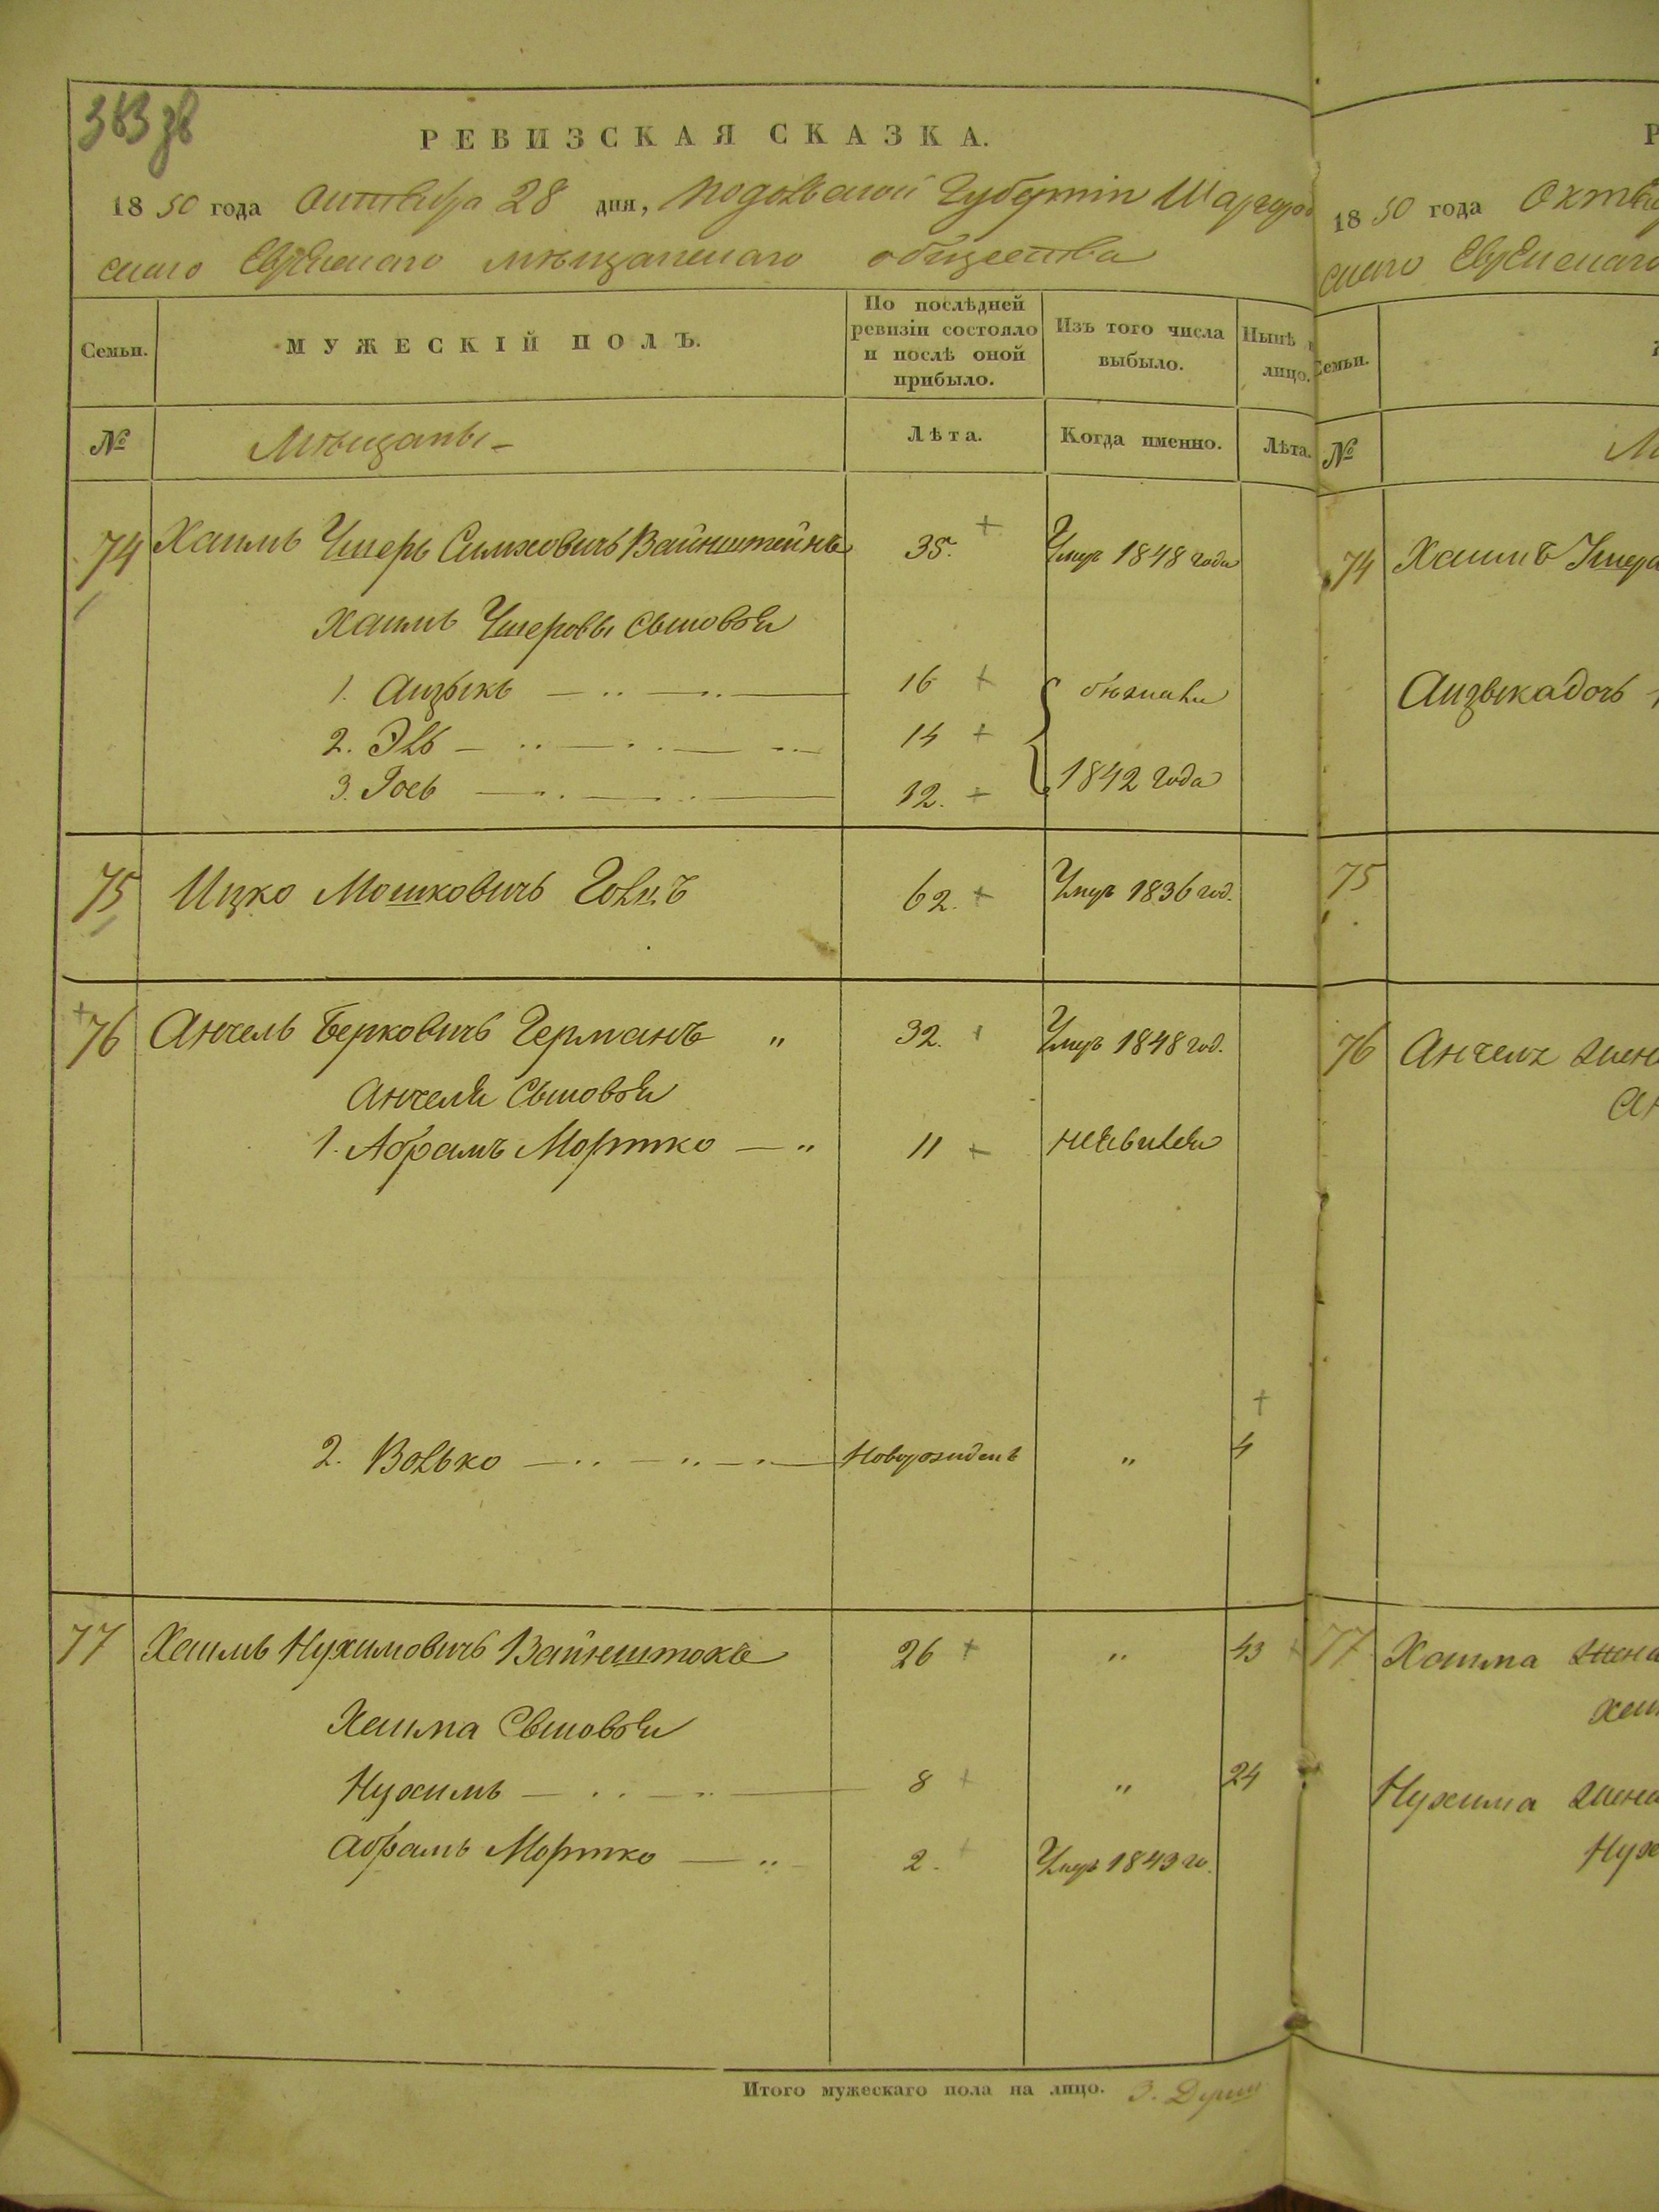 383 зв
РЕВИЗСКАЯ СКАЗКА.
1850 года Октября 28 дня, Подольской Губернiи Шаргород
скаго Еврейскаго мѣщанскаго общества
Семьи.
МУЖЕСКІЙ ПОЛЪ.
По послѣдней ревизіи состояло и послѣ оной прибыло.
Изъ того числа выбыло.
Нынѣ
лицо.
№
Мѣщаны
Лѣта.
Когда именно.
Лѣта.
74 Хаимъ Ушеръ Симховичъ Вайнштейнъ 35. Умеръ 1848 года
Хаимъ Ушеровы Сыновья
1. Аизыкъ 16
2. Эль 14
3. Гось 12. 1842 года
75 Ицко Мошковичъ 62. Умеръ 1836 год.
76 Анчель Берковичъ Германъ " 32. Умеръ 1848 год.
Анчеля Сыновья
1. Абрамъ Мортко " 11
2. Волько Новорожденъ " 4
77 Хаимъ Нухимовичъ Вайнштокъ 26 " 43
Хаима Сыновья
Нухимъ 8 " 24
Абрамъ Мортко " 2. Умеръ 1843 го.
Итого мужескаго пола на лицо. 3. Души
Р
1850 года Октя
скаго Еврейскаго
Семьи.
№
74 Хаимъ Ушера
Аизыка дочь
75
76 Анчеля жен
Ан
77 Хаима жена
Хаи
Нухима жена
Нух